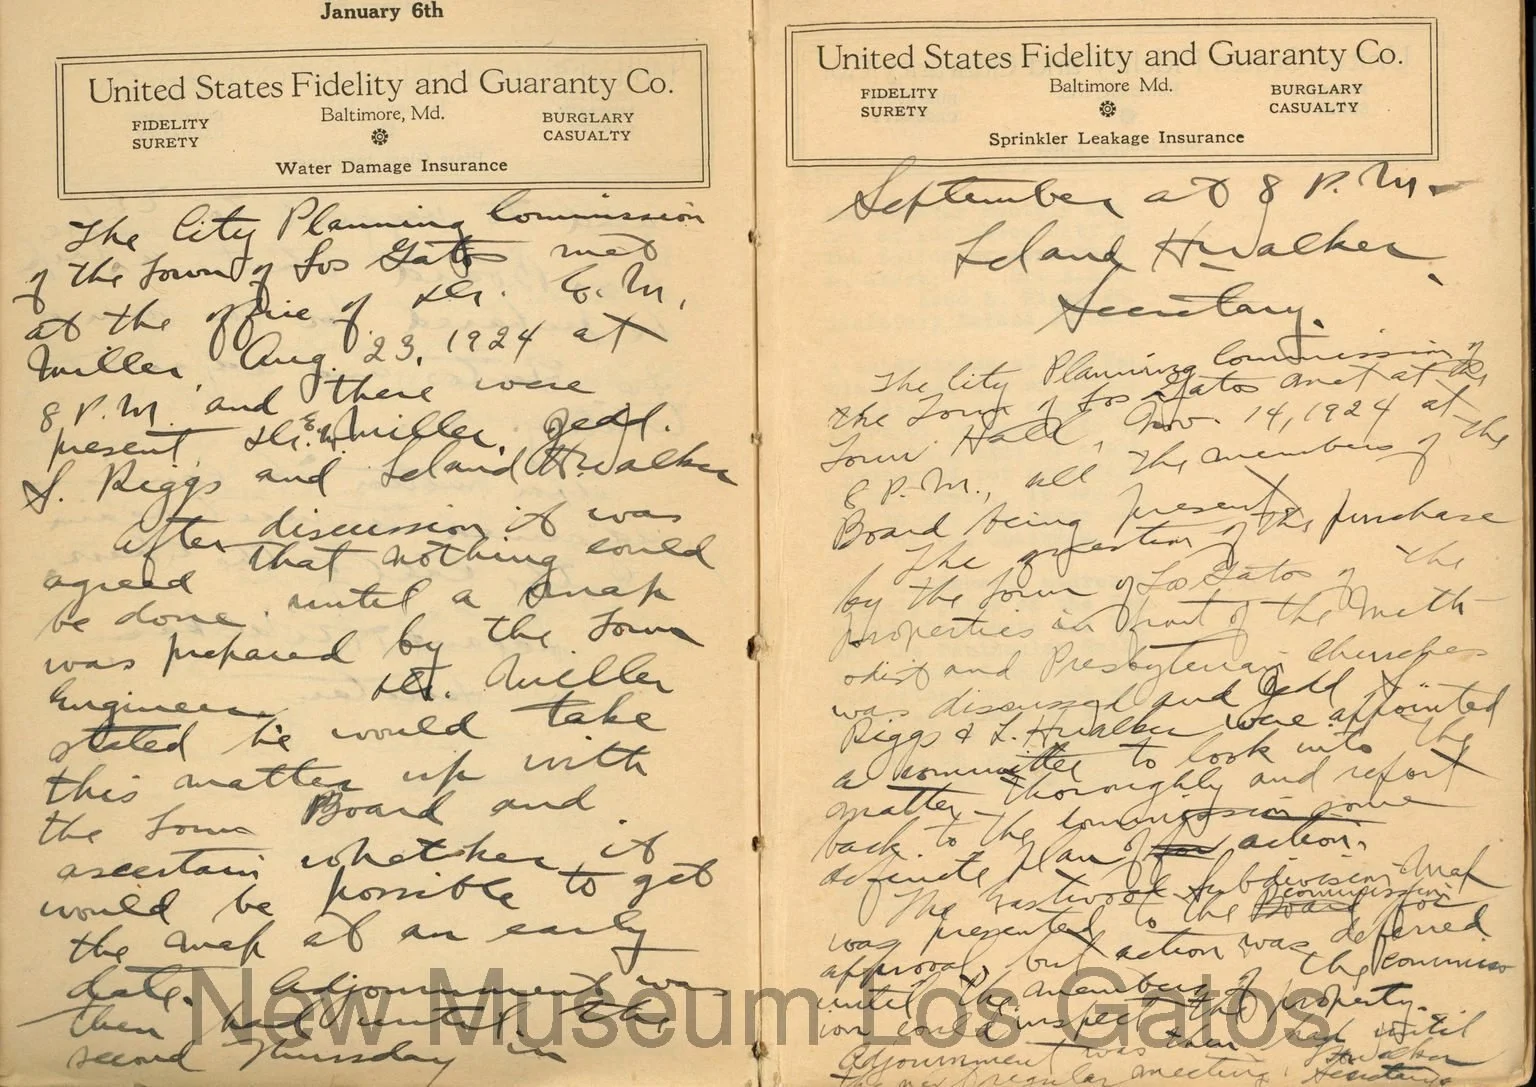 January 6th
United States Fidelity and Guaranty Co.
Baltimore, Md.
FIDELITY BURGLARY
SURETY CASUALTY
Water Damage Insurance
The City Planning Commission
of the Town of Los Gatos met
at the office of Dr. E. M.
Miller, Aug. 23, 1924 at
8 P.M. and there were
present, Dr. E. M. Miller, Zedd.
S. Riggs and Leland H. Walker
After discussion it was
agreed that nothing could
be done until a map
was prepared by the Town
Engineer. Dr. Miller
stated he would take
this matter up with
the Town Board and
ascertain whether it
would be possible to get
the map at an early
date. Adjournment was
then had until the
second Thursday in
United States Fidelity and Guaranty Co.
Baltimore Md.
FIDELITY BURGLARY
SURETY CASUALTY
Sprinkler Leakage Insurance
September at 8 P.M.
Leland H. Walker
Secretary.
The City Planning Commission of
the Town of Los Gatos met at the
Town Hall, Nov. 14, 1924 at
8 P.M., all the members of the
Board being present
The question of the purchase
by the Town of Los Gatos of the
properties in front of the Meth-
odist and Presbyterian Churches
was discussed and Zedd S.
Riggs & L. H. Walker were appointed
a committee to look into the
matter thoroughly and report
back to the commission some
definite plan of for action.
The Subdivision Map
was presented to the Board commission for
approval, but action was deferred
until the members of the commiss
ion could inspect the property.
Adjournment was then had until
the next regular meeting. Walker
Secretary
New Museum Los Gatos